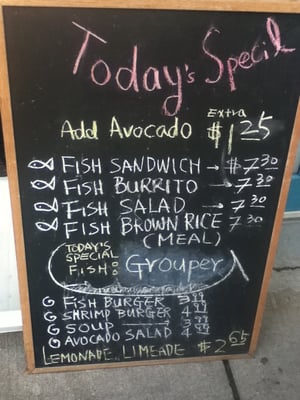 Today's Special
Extra
Add Avocado $1 25
Fish Sandwich → $7 30
Fish Burrito → 7 30
Fish Salad → 7 30
Fish Brown Rice 7 30
(Meal)
Today's
Special
Fish: Grouper
G Fish Burger 3 99
G Shrimp Burger 4 99
G Soup 3 99
G Avocado Salad 4 99
Lemonade, Limeade $2 65